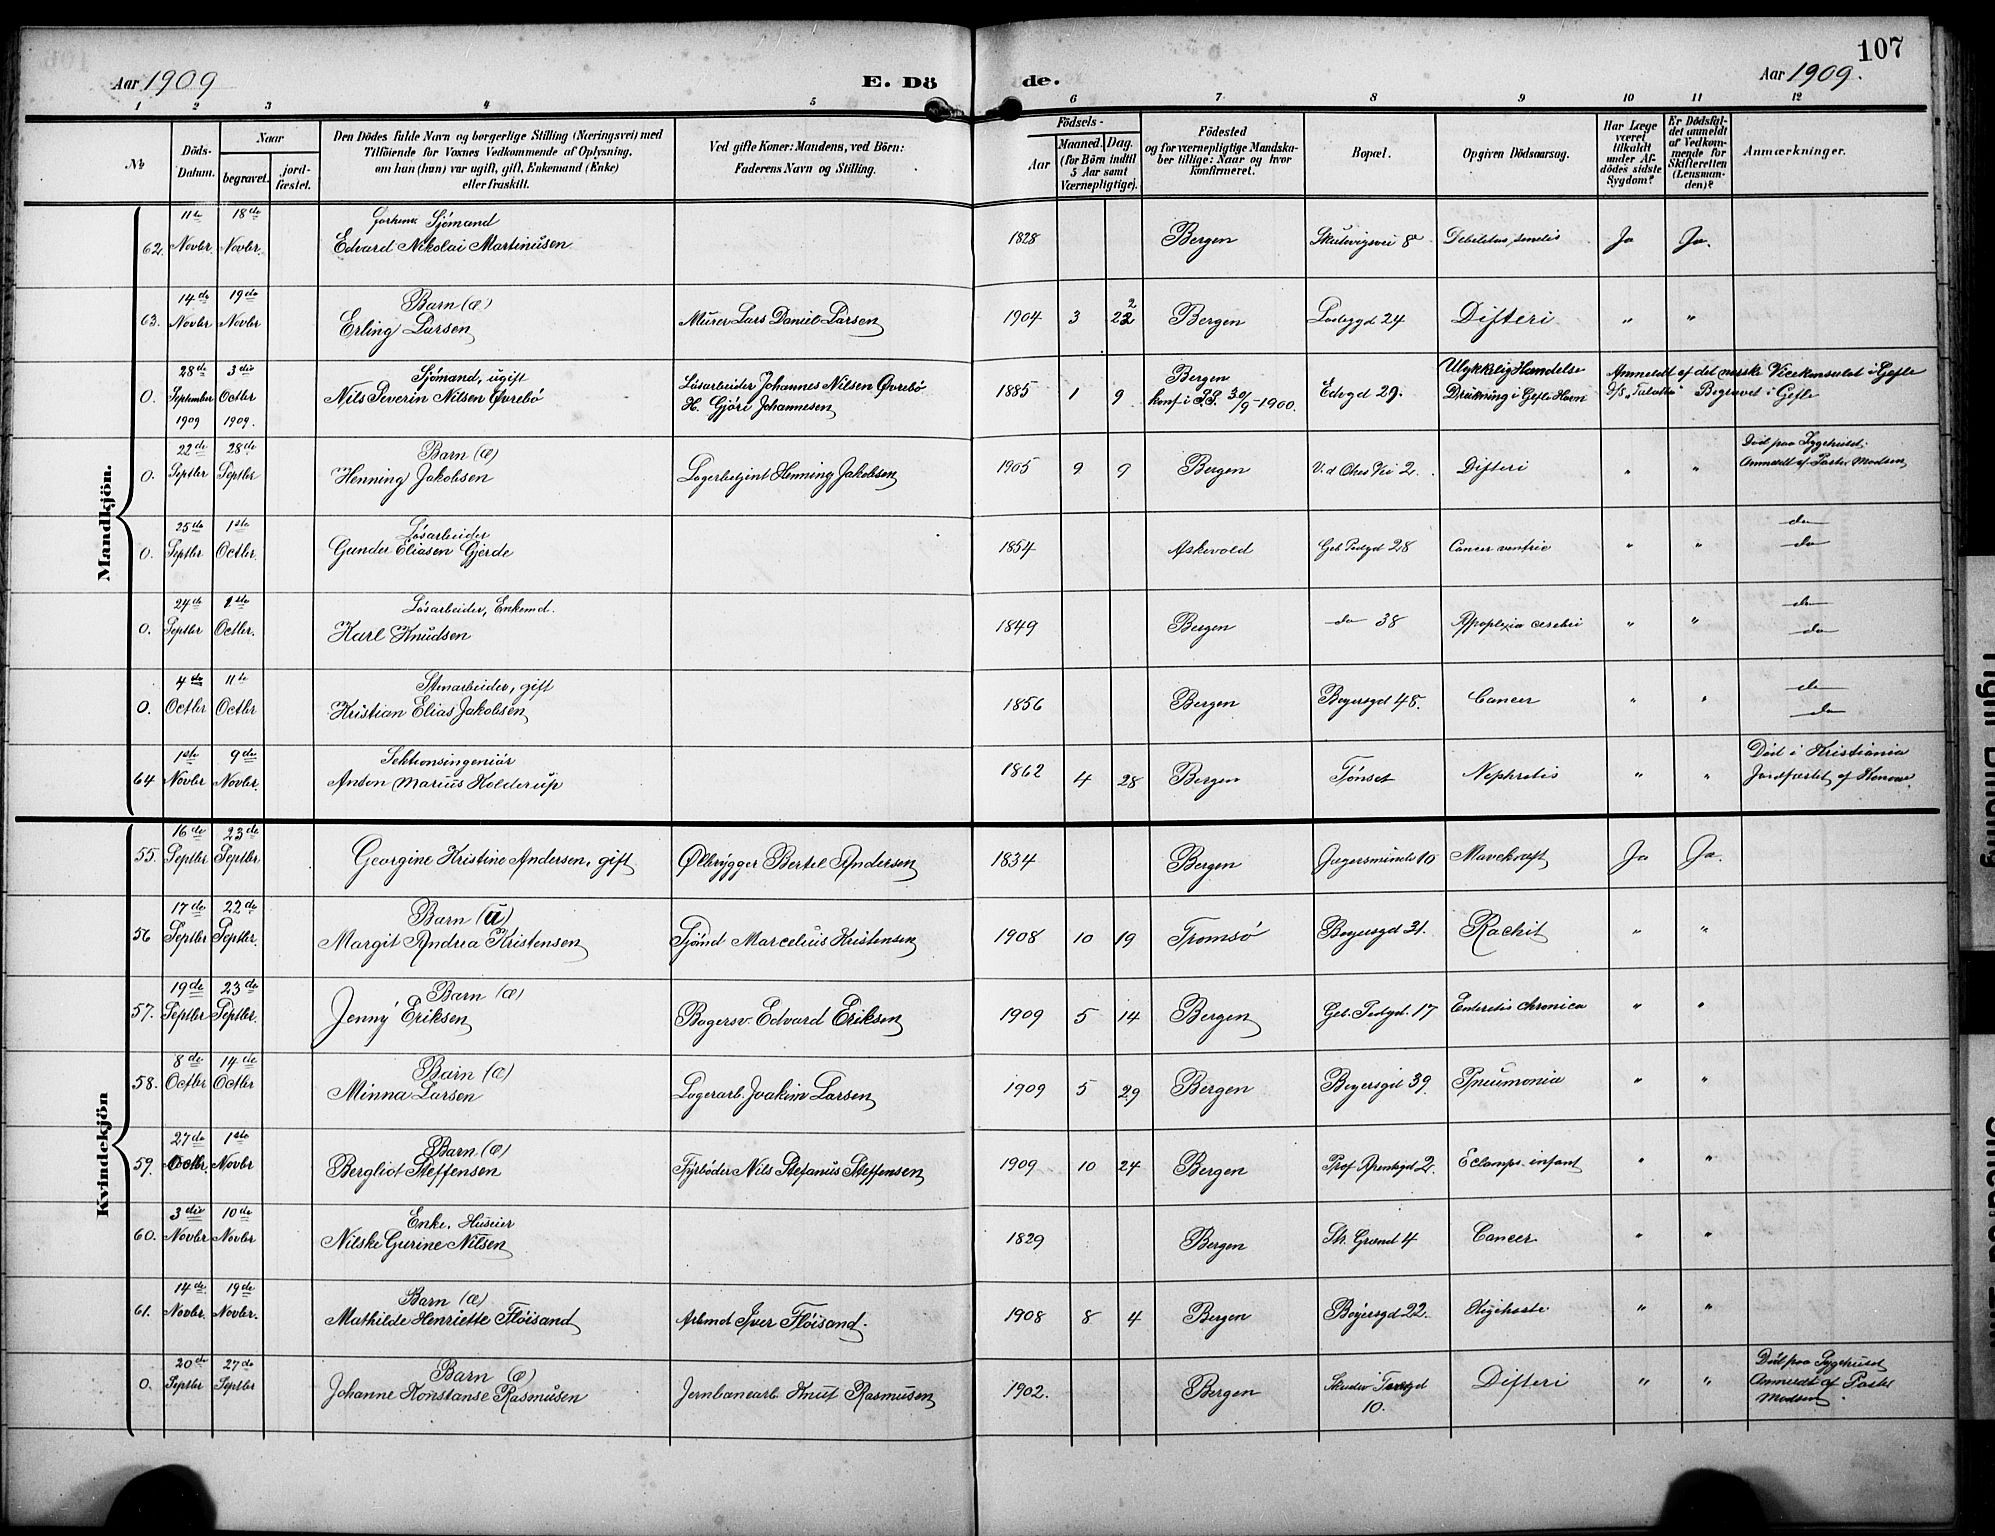 107
Aar 1909
E. Dö de.
Aar 1909.
1 2 3 4 5 6 7 8 9 10 11 12
№
Döds-Datum.
Naar
begravet. jord-fæstet.
Den Dödes fulde Navn og borgerlige Stilling (Næringsvei) med
Tilföiende for Voxnes Vedkommende af Oplysning,
om han (hun) var ugift, gift, Enkemand (Enke)
eller fraskilt.
Ved gifte Koner: Mandens, ved Börn:
Faderens Navn og Stilling.
Födsels-
Aar Maaned. Dag.
(for Börn indtil
5 Aar samt
Værnepligtige).
Födested
og for værnepligtige Mandska-
ber tillige: Naar og hvor
konfirmeret.
Bopæl.
Opgiven Dödsaarsag.
Har Læge
været
tilkaldt
under Af-
dödes sidste
Sygdom?
Er Dödsfal-
det anmeldt
af Vedkom-
mende for
Skifteretten
(Lensman-
den)?
Anmærkninger.
Mandkjön.
11te 18de Sjömand
62. Novbr. Novbr. Edvard Nikolai Martinusen 1828 Bergen Skutevigsvei 8a Debilitas senilis Ja Ja.
14de 19de Barn (æ)
63. Novbr Novbr Erling Larsen Murer Lars Daniel Larsen 1904 3 22 Bergen Ladegd 24 Difteri " "
28de 3die Sjömand, ugift
0. September Octbr Nils Severin Nilsen Øvrebö Løsarbeider Johannes Nilsen Øvrebö 1885 1 9 Bergen Ulykkelig Handelse Anmeldt af det norske Vicekonsulat i Gefle
1909 1909. H. Gjöri Johannesen konf i 30/9-1900. Edvgd 29. Drukning i Gefle Havn Begravet i Gefle
22de 28de Barn (æ) Död paa Sygehuset.
0. Septbr Septbr Henning Jakobsen Lagerbetjent Henning Jakobsen 1905 9 9 Bergen Vei 2. Difteri " " Anmeldt af Pastor Madsen
25de 1ste Løsarbeider do
0. Septbr Octbr. Gunder Eliasen Gjerde 1854 Askevold Geb Pedgd 28 Cancer ventric " " do
24de 1ste Løsarbeider, Enkemd. do
0. Septbr Octbr. Karl Knudsen 1849 Bergen do 38 Apoplexia cerebri " " do
4de 11te Stenarbeider, gift do
0. Octbr Octbr Kristian Elias Jakobsen 1856 Bergen Beyersgd 48. Cancer " " do
1ste 9de Sektionsingeniör Död i Kristiania
64 Novbr Novbr. Anton Marius Holderup 1862 4 28 Bergen Tönset Nephretis " " Jordfæstet af
Kvindekjön
16de 23de
55. Septbr Septbr Georgine Kristine Andersen, gift Ølbrygger Bertel Andersen 1834 Bergen Jægersminde 10 Mavekræft Ja Ja.
17de 22de Barn (u)
56 Septbr Septbr. Margit Andrea Kristensen Sjömd Marcelius Kristensen 1908 10 19 Tromsö Beyersgd 31. Rachit " "
19de 23de Barn (æ)
57. Septbr Septbr. Jenny Eriksen Bagersv. Edvard Eriksen 1909 5 14 Bergen Geb. Pedgd. 17 Enteretis chronica " "
8de 14de Barn (æ)
58. Octbr Octbr Minna Larsen Lagerarb. Joakim Larsen 1909 5 29 Bergen Beyersgd 39. Pneumonia " "
27de 1ste Barn (æ)
59. Octbr. Novbr Bergliot Steffensen Fyrböder Nils Stefanus Steffensen 1909 10 24 Bergen Prof. Arentzgd 2. Eclamps. infant " "
3die 10de Enke. Huseier
60. Novbr Novbr Nilske Gurine Nilsen 1829 Bergen St. Grønd 4 Cancer " "
14de 19de Barn (æ)
61. Novbr. Novbr. Mathilde Henriette Flöisand Arbmd Iver Flöisand. 1908 8 4 Bergen Beyersgd 22. Kighoste " "
20de 27de Barn (æ) Död paa Sygehuset
0. Septbr Septbr Johanne Konstanse Rasmusen Jernbanearb. Knut Rasmusen 1902. Bergen 10. Difteri " " Anmeldt af Pastor
Madsen